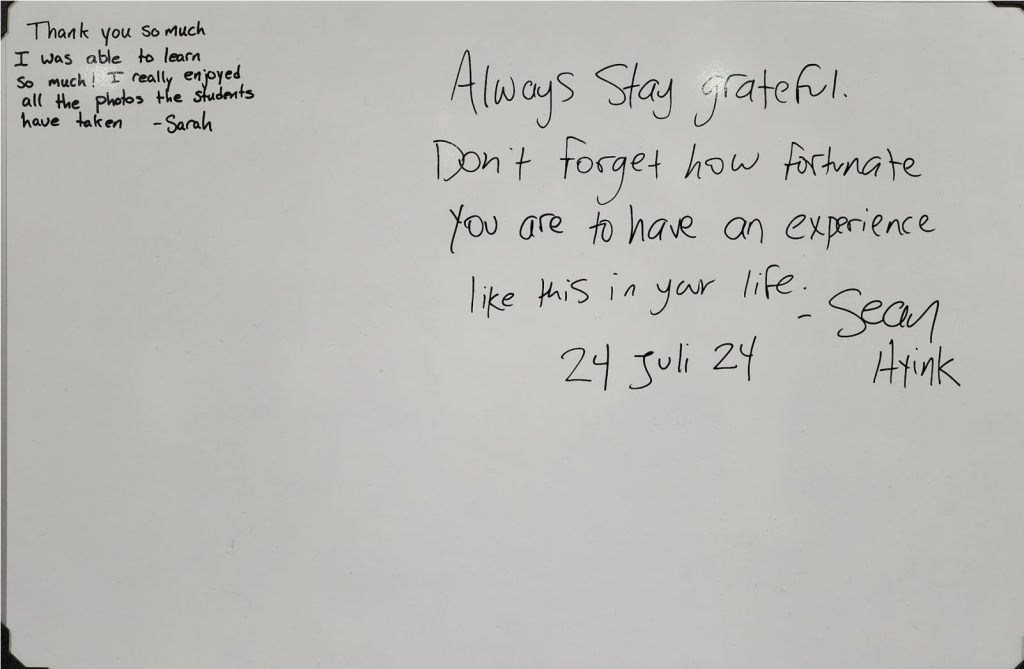 Thank you so much
I was able to learn
so much! I really enjoyed
all the photos the students
have taken -Sarah
Always Stay grateful.
Don't forget how fortunate
you are to have an experience
like this in your life.
- Sean
Hyink
24 Juli 24